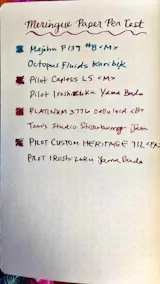 Meringue Paper Pen Test
Majohn P139 #8 <M>
Octopus Fluids Karibik
Pilot Capless LS <M>
Pilot Iroshizuku Yama Budo
PLATINUM 3776 Celluloid <B>
Tono's Studio Jam
PILOT CUSTOM HERITAGE 912
PILOT Iroshizuku Yama Budo